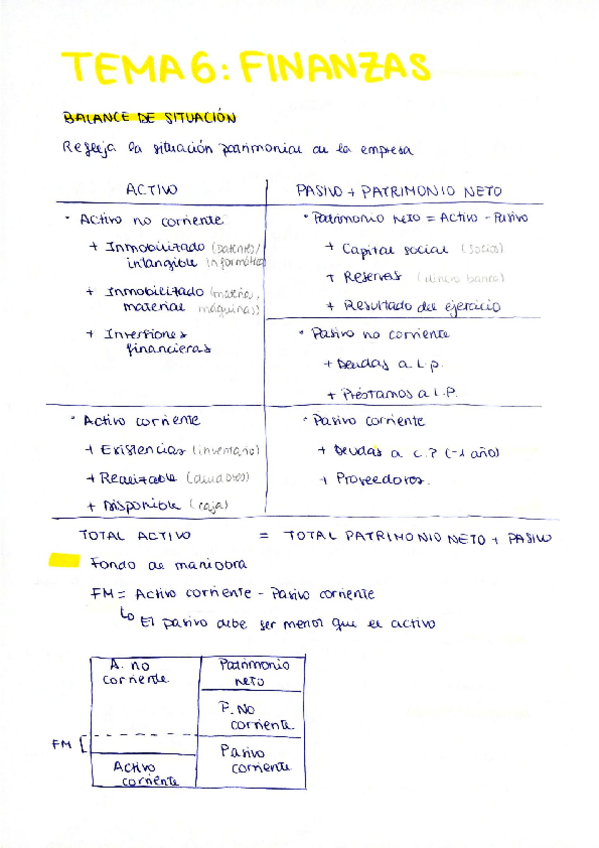 TEMA 6: FINANZAS
BALANCE DE SITUACIÓN
Refleja la situación patrimonial de la empresa
ACTIVO
PASIVO + PATRIMONIO NETO
· Activo no corriente
+ Inmobilizado (patentes/
intangible informática)
+ Inmobilizado (mesas,
material máquinas)
+ Inversiones
financieras
· Patrimonio neto = Activo - Pasivo
+ Capital social (socios)
+ Reservas (dinero banco)
+ Resultado del ejercicio
· Pasivo no corriente
+ Deudas a L.p.
+ Préstamos a L.P.
· Activo corriente
+ Existencias (inventario)
+ Realizable (deudores)
+ Disponible (caja)
· Pasivo corriente
+ Deudas a C.P (-1 año)
+ Proveedores.
TOTAL ACTIVO = TOTAL PATRIMONIO NETO + PASIVO
Fondo de maniobra
FM = Activo corriente - Pasivo corriente
El pasivo debe ser menor que el activo
A. no
corriente
Patrimonio
neto
P. No
corriente
FM
Activo
corriente
Pasivo
corriente